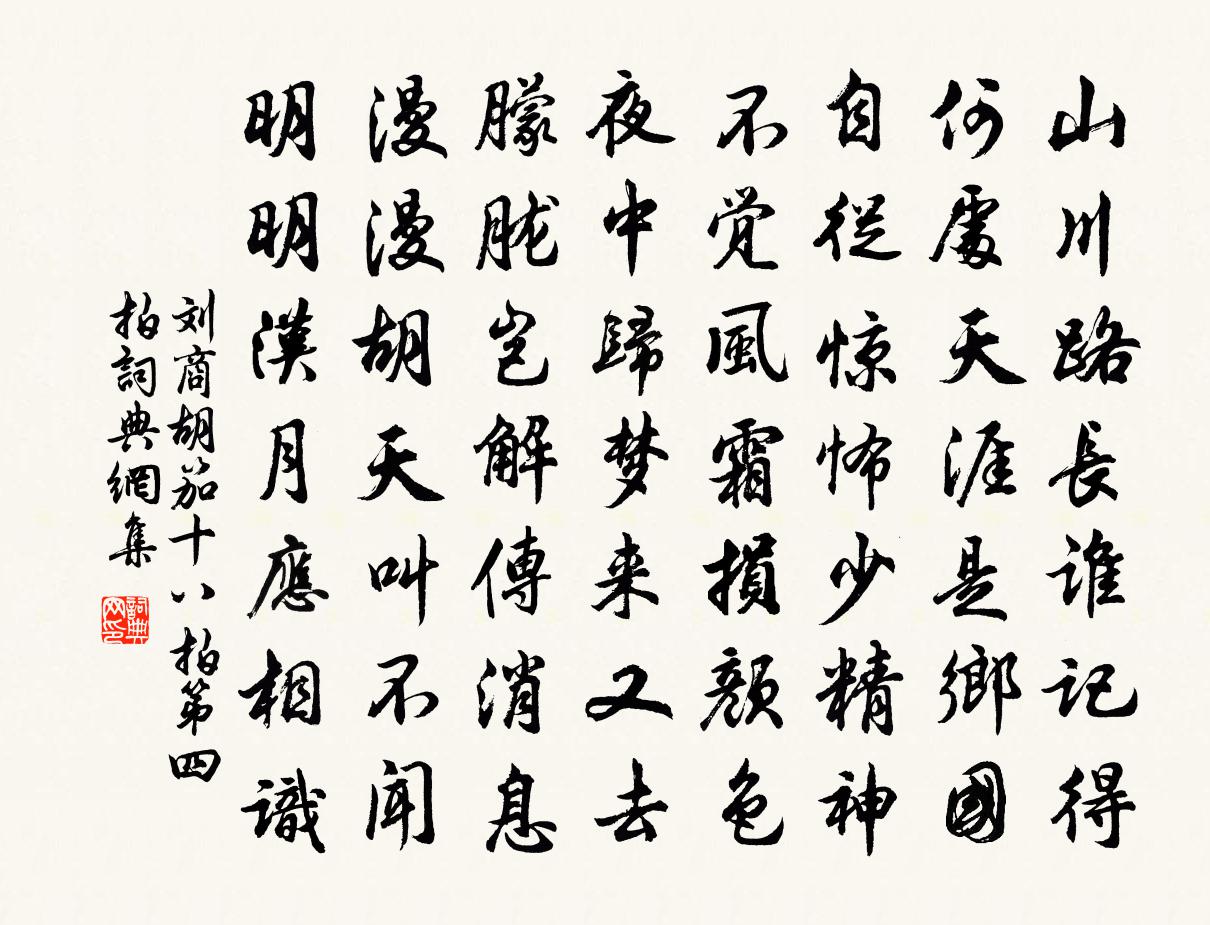 山川路長誰記得
何處天涯是鄉國
自從惊怖少精神
不覺風霜損顏色
夜中歸梦来又去
朦朧岂解傳消息
漫漫胡天叫不聞
明明漢月應相識
刘商胡笳十八拍第四
拍詞典網集
詞典网印